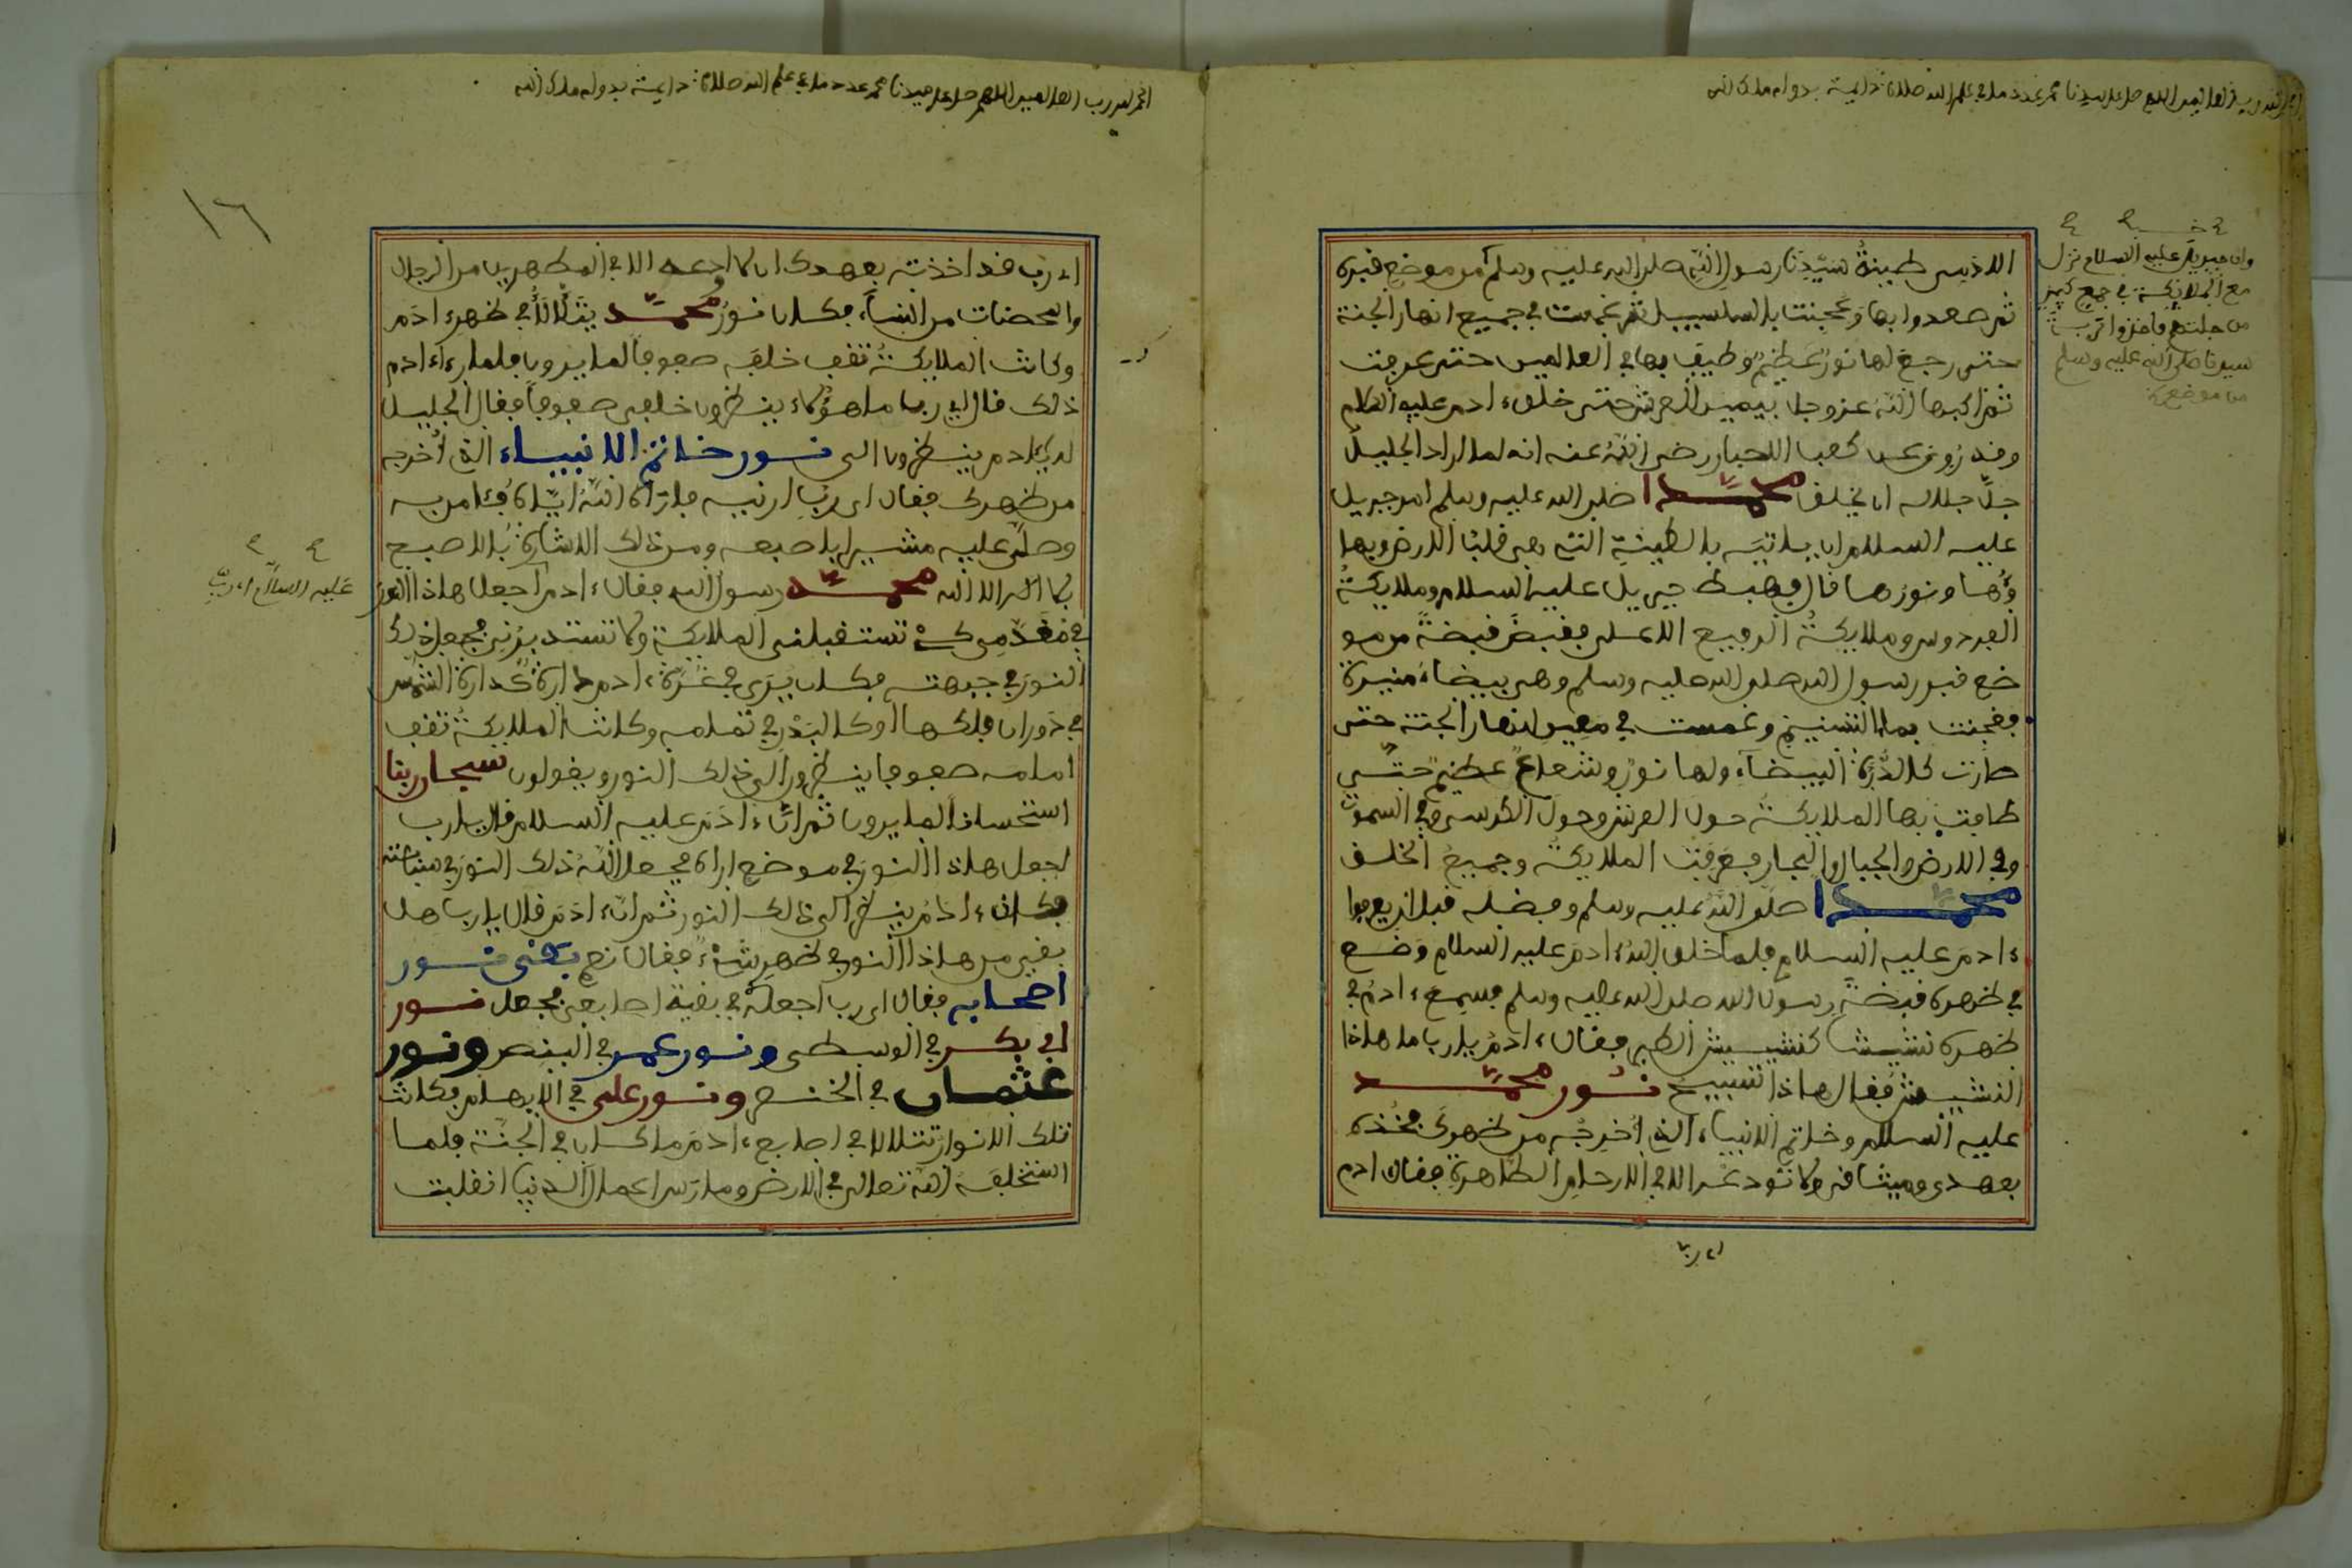 الحمد لله رب العالمين اللهم صل على سيدنا محمد عدد ما في علم الله صلاة دائمة بدوام ملك الله
وان جبريل عليه السلام نزل
مع الملائكة في جمع كبير
من جملتهم فاخذوا تربت
سيدنا صلى الله عليه وسلم
من موضع
الاذيس طينة سيدنا رسول الله صلى الله عليه وسلم من موضع قبره
ثم صعدوا بها وعجنت بالسلسبيل ثم غمست في جميع انهار الجنة
حتى رجع لها نور عظيم وطيف بها في العالمين حتى عرفت
ثم اكبها الله عز وجل بيمين العرش حتى خلق ءادم عليه السلام
وقد روي عن كعب الاحبار رضي الله عنه انه لما اراد الجليل
جل جلاله ان يخلق محمدا صلى الله عليه وسلم امر جبريل
عليه السلام ان ياتيه بالطينة التي هي قلب الارض وبها
ؤها ونورها قال فهبط جبريل عليه السلام وملايكة
الفردوس وملايكة الرفيع الاعلى فقبض قبضة من مو
ضع قبر رسول الله صلى الله عليه وسلم وهي بيضاء منيرة
فعجنت بماء التسنيم وغمست في معين انهار الجنة حتى
صارت كالدرة البيضاء ولها نور وشعاع عظيم حتى
طافت بها الملايكة حول العرش وحول الكرسي وفي السموت
وفي الارض والجبال والبحار فعرفت الملايكة وجميع الخلق
محمدا صلى الله عليه وسلم وفضله قبل ان يعرفوا
ءادم عليه السلام فلما خلق الله ءادم عليه السلام وضع
في ظهره قبضة رسول الله صلى الله عليه وسلم فسمع ءادم في
ظهره نشيشا كنشيش الطير فقال ءادم يارب ما هاذا
النشيش فقال هاذا تسبيح نور محمد
عليه السلام وخاتم الانبياء الذي اخرجه من ظهرك فخذه
بعهدي وميثاقي ولا تودعه الا في الارحام الطاهرة فقال ادم
اي رب
الحمد لله رب العالمين اللهم صل على سيدنا محمد عدد ما في علم الله صلاة دايمة بدوام ملك الله
١٦
اي رب قد اخذته بعهدك ان لا اودعه الا في المطهرين من الرجال
والمحصنات من النساء فكان نور محمد يتلألأ في ظهر ءادم
وكانت الملايكة تقف خلفه صفوفا لما يرون فلما رءا ءادم
ذلك قال اي رب ما هؤلاء ينظرون خلفي صفوفا فقال الجليل
له يادم ينظرون الى نور خاتم الانبياء الذي اخرجه
من ظهرك فقال اي رب ارنيه فاراه الله اياه فءامن به
وصلى عليه مشيرا باصبعه ومن ذلك الاشارة بالاصبع
بلا اله الا الله محمد رسول الله فقال ءادم اجعل هاذا النور
عليه السلام اي رب
في مقدمي كي تستقبلني الملايكة ولا تستدبرني فجعل ذلك
النور في جبهته فكان يرى في غرة ءادم دارة كدارة الشمس
في دوران فلكها او كالبدر في تمامه وكانت الملايكة تقف
امامه صفوفا ينظرون الى ذلك النور ويقولون سبحان ربنا
استحسانا لما يرون ثم ان ءادم عليه السلام قال يارب
اجعل هاذا النور في موضع اراه فجعل الله ذلك النور في سبابته
فكان ءادم ينظر الى ذلك النور ثم ان ءادم قال يارب هل
بقي من هاذا النور في ظهري شيء فقال نعم بقي نور
اصحابه فقال اي رب اجعله في بقية اصابعي فجعل نور
ابي بكر في الوسطى ونور عمر في البنصر ونور
عثمان في الخنصر ونور علي في الابهام فكانت
تلك الانوار تتلالا في اصابع ءادم ما كان في الجنة فلما
استخلفه الله تعالى في الارض ومارس اعمال الدنيا انقلبت